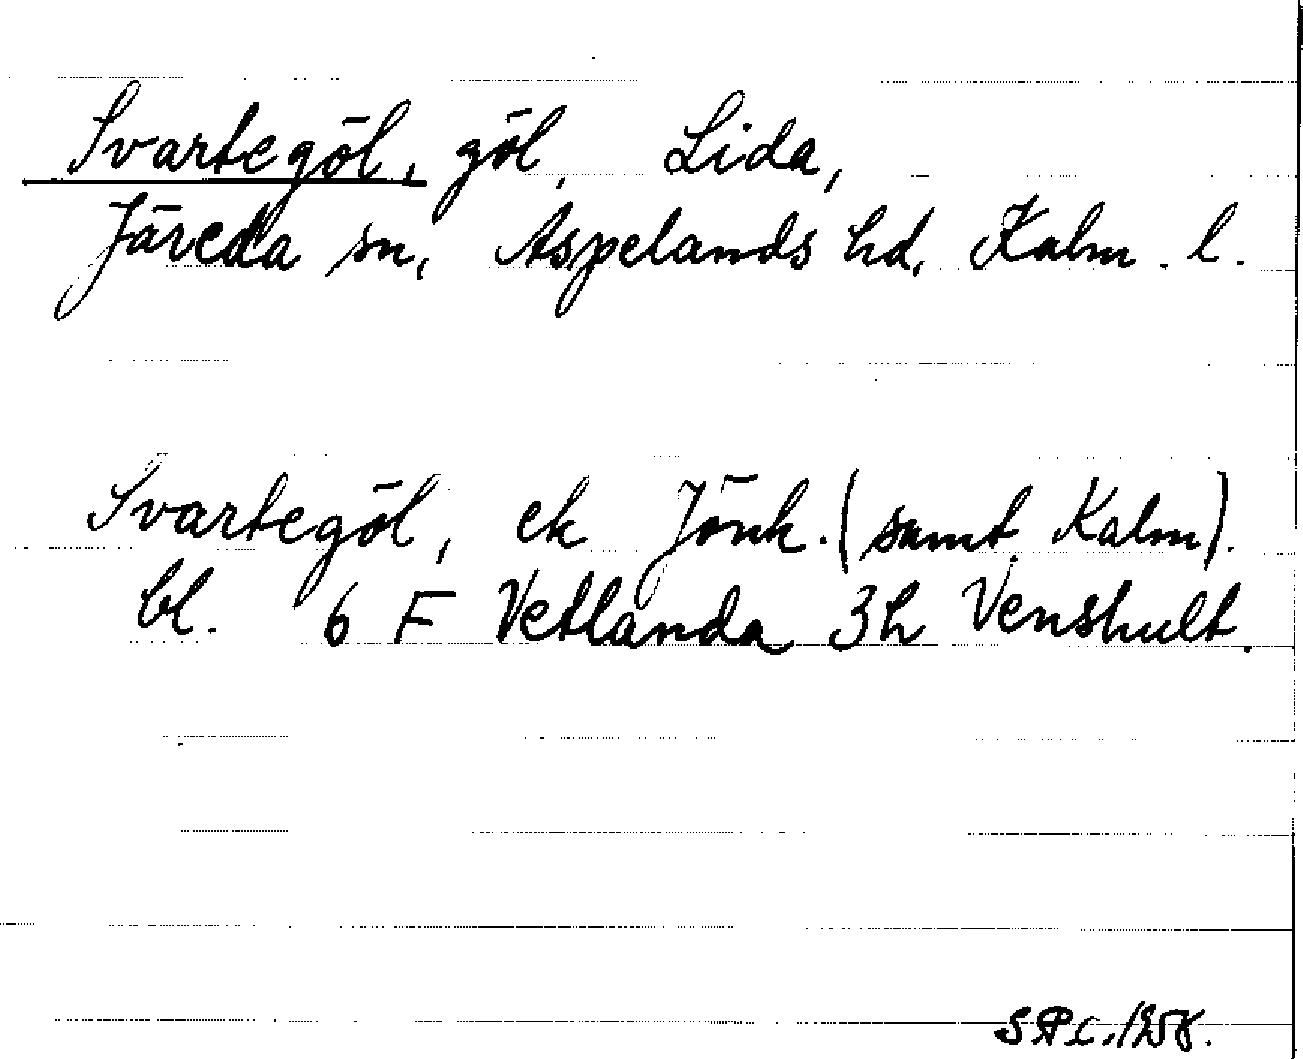 Svartegöl, göl, Lida,
Järeda sn, Aspelands hd, Kalm. l.
Svartegöl, ek Jönk. (samt Kalm).
bl. 6 F Vetlanda 3h Venshult.